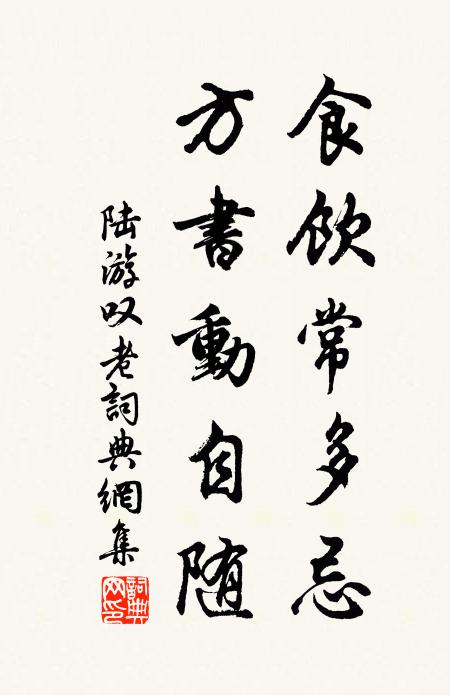 食飲常多忌
方書動自随
陆游叹老詞典網集
詞典网印